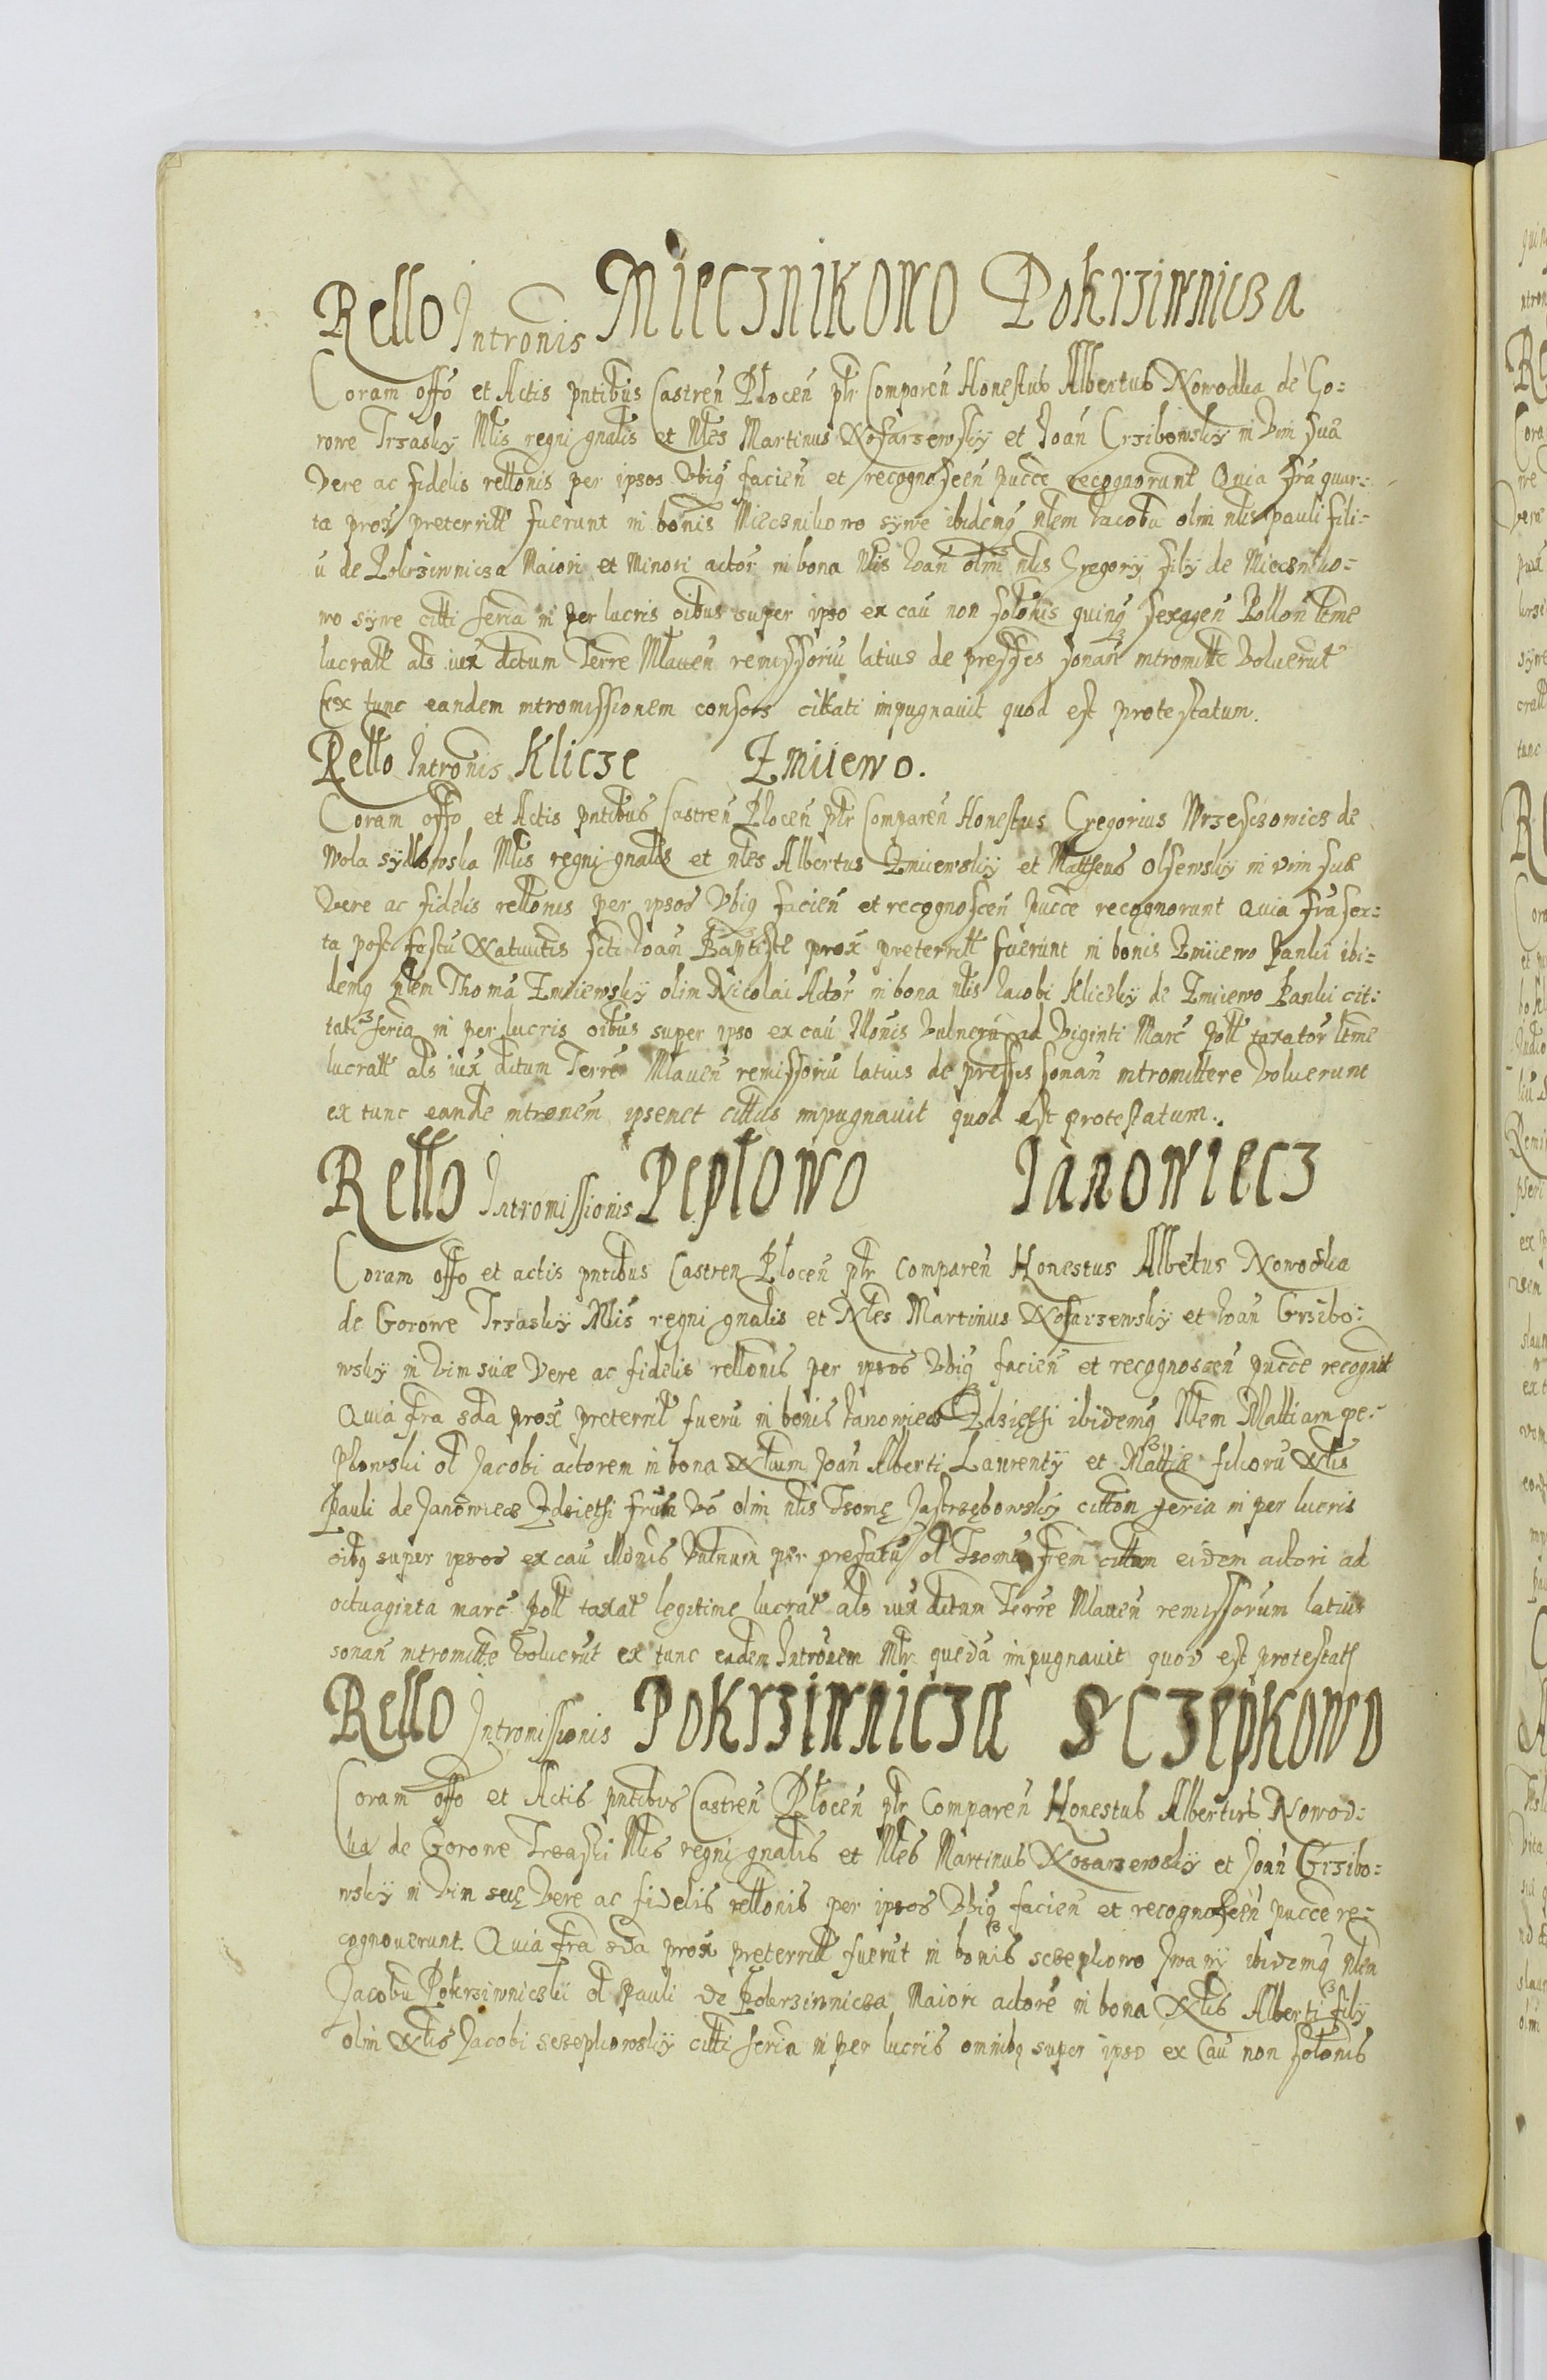 Rello Intronis Miecznikowo Pokrziwnicza
Coram offo et Actis pntibus Castren Plocen plr Comparen Honestus Albertus Nowodka de Go=
rowe Trzasky Mlis regni gnalis et Nles Martinus Nosarzewsky et Joan Grzibowsky in Vim sua
Vere ac fidelis rellonis per ipsos Vbiq facien et recognoscen pucce recognorunt Quia fra quar=
ta prox preterritt fuerunt in bonis Miecznikowo sywe ibidemq nlem Jacobu olim nlis pauli fili=
u de Pokrziwnicza Maiori et Minori actor in bona Nlis Joan olim nlis Gregory fily de Mieczniko=
wo sywe citti seria in per lucris oibus super ipso ex cau non solonis quinq sexagen Pollon ltme
lucratt als iux dctum Terre Mlauen remissoriu latius de presses sonan intromitte Voluerut
Ex tunc eandem intromissionem consors cittati impugnavit quod est protestatum.
Rello Intronis Klicze Zmiiewo.
Coram offo et Actis pntibus Castren Plocen plr Comparen Honestus Gregorius Wrzesczowicz de
Wola sydlowska Mlis regni gnalis et nles Albertus Zmiiewsky et Mattheus Olsewsky in vim sue
Vere ac fidelis rellonis per ipsos Vbiq facien et recognoscen pucce recognorunt Quia fra sex=
ta post festu Natuitis scti Joan Baptiste prox preterritt fuerunt in bonis Zmiiewo Panki ibi=
demq nlem Thoma Zmiiewsky olim Nicolai Actor in bona nlis Jacobi Kliczky de Zmiiewo Panki cit=
tati seria in per lucris oibus super ipso ex cau Illonis Vulneru ad Viginti Marc Poll taxator ltme
lucratt als iux dctum Terre Mlauen remissoriu latius de presses sonan intromittere Voluerunt
ex tunc eande intronem ipsemet cittus impugnavit quod est protestatum.
Rello Intromissionis Peplowo Janowiecz
Coram offo et actis pntibus Castren Plocen plr Comparen Honestus Albertus Nowodka
de Gorowe Trzasky Mlis regni gnalis et Nles Martinus Nosarzewsky et Joan Grzibo=
wsky in Vim suae Vere ac fidelis rellonis per ipsos Vbiq facien et recognoscen pucce recognit
Quia fra sda prox preterrit fueru in bonis Janowiecz Zdzietsi ibidemq Nlem Mattiam pe=
plowski ol Jacobi actorem in bona Nlium Joan Alberti Laurenty et Mattiae filioru Nlis
Pauli de Janowiecz Zdzietsi frum Vo olim nlis Tsome Jastrzebowsky citton seria in per lucris
oibq super ipsos ex cau illonis Vulnum per prefatu ol Tsomu frem cittum eidem actori ad
octuaginta marc Poll taxat legitime lucrat als iux dctum Terre Mlauen remissorum latius
sonan intromitte Voluerut ex tunc eadem Intronem Mlr queda impugnauit quod est protestats
Rello Intromissionis Pokrziwnicza Sczepkowo
Coram offo et Actis pntibus Castren Plocen plr Comparen Honestus Albertus Nowod=
ka de Gorowe Trzaski Mlis regni gnalis et Nles Martinus Nosarzewsky et Joan Grzibo=
wsky in Vim sue Vere ac fidelis rellonis per ipsos Vbiq facien et recognoscen pucce re=
cognouerunt. Quia fra sda prox preterritt fuerut in bonis sczepkowo Jwany ibidemq nlem
Jacobu Pokrziwniczki ol Pauli de Pokrziwnicza Maiori actore in bona Nlis Alberti fily
olim Nlis Jacobi sczepkowsky citti seria in per lucris omnibq super ipso ex Cau non solonis